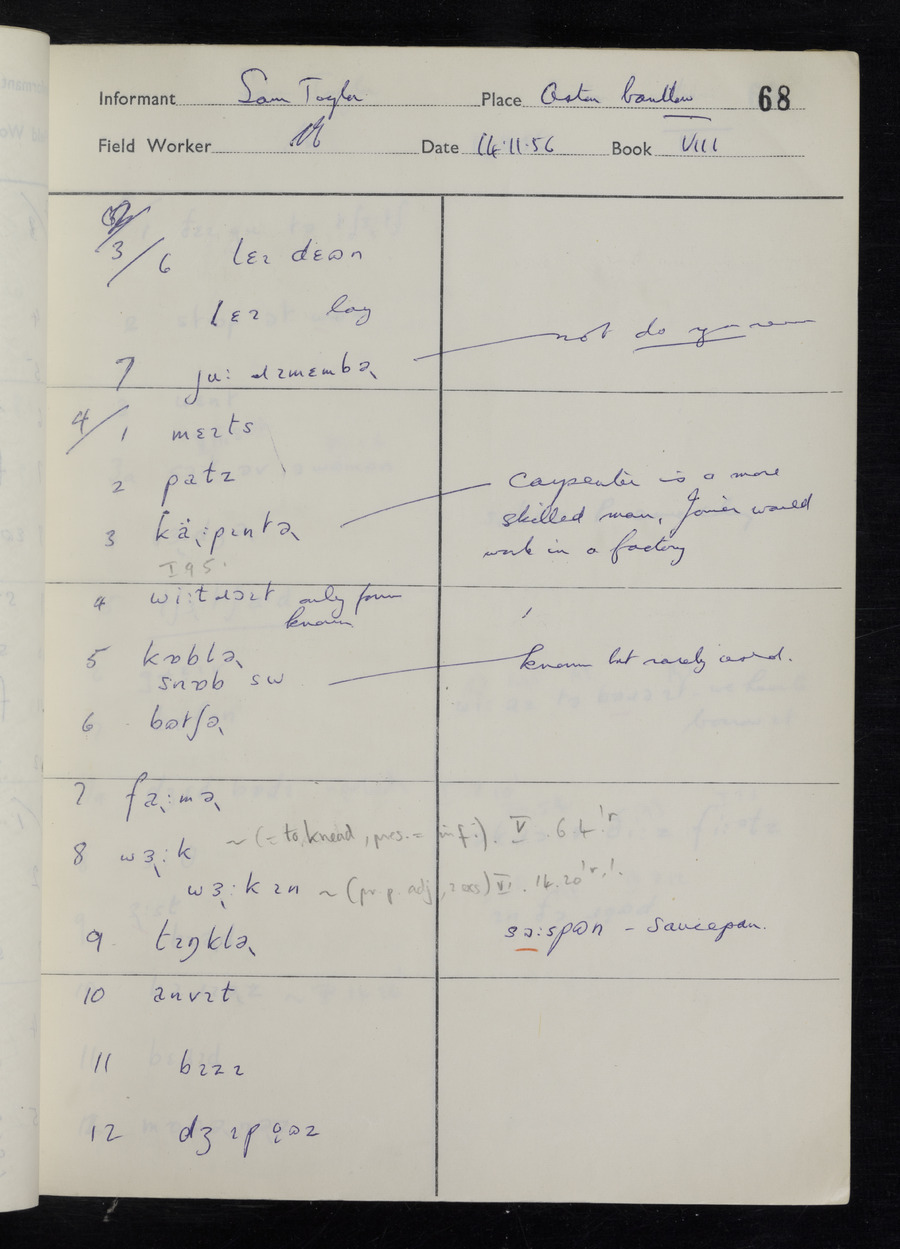 Informant Sam Taylor Place Aston Cantlow 68
Field Worker Date 14.11.56 Book VIII
3/6 lɛɪ dɛʊn
lɛɪ lay
7 ju: ɹɪmɛmbə˞ not do you
4/1 mɛɪts
2 patɪ
3 kä˞:pɪntə˞ carpenter is a more
skilled man, Joiner would
work in a factory
I 95.
4 wi:tɹɔɪt only form
known
5 kɒblə˞ known but rarely used.
snɒb sw
6 bʊtʃə˞
7 fa˞:mə˞
8 wɜ˞:k ~ (= to knead, pres. = inf.). V. 6 4. 'r
wɜ˞:kɪn ~ (pr. p. adj., 2 oxs) VI. 14. 20 'r,'.
9 tɪŋklə˞ sɔ:spən - saucepan.
10 anvɪt
11 bɪzɪ
12 dʒɪpʊəz